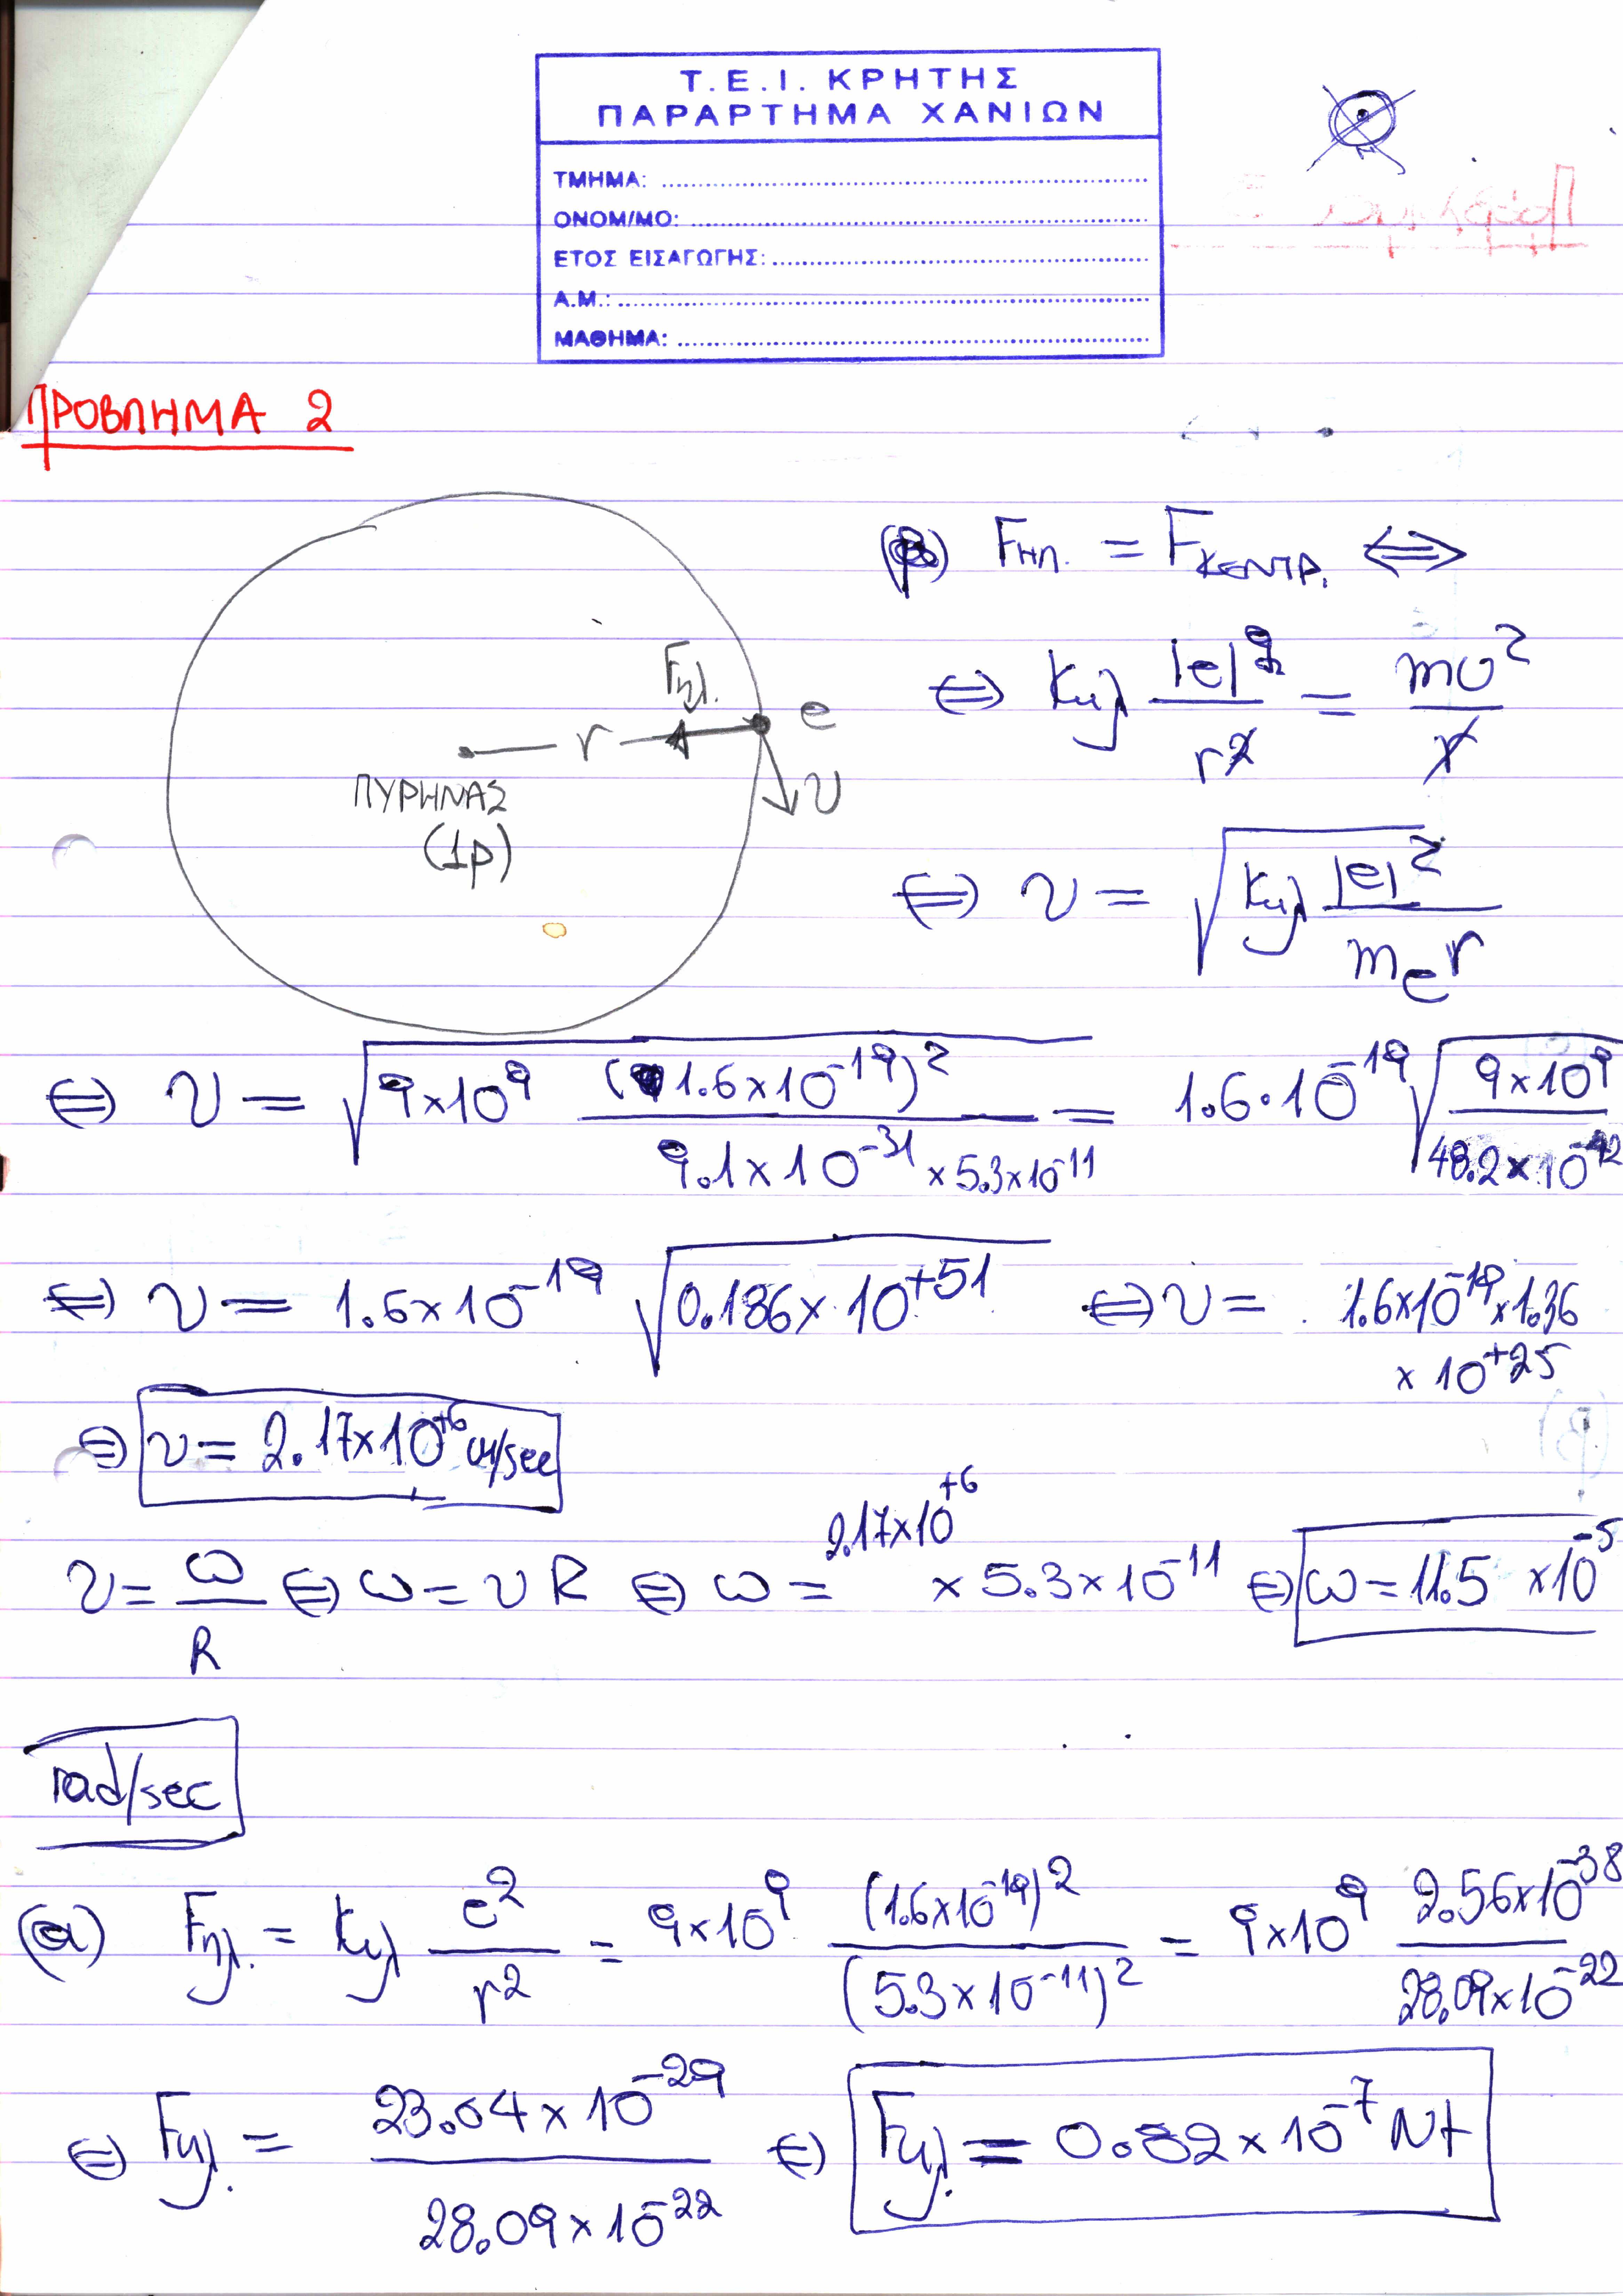 Τ.Ε.Ι. ΚΡΗΤΗΣ
ΠΑΡΑΡΤΗΜΑ ΧΑΝΙΩΝ
ΤΜΗΜΑ:
ΟΝΟΜ/ΜΟ:
ΕΤΟΣ ΕΙΣΑΓΩΓΗΣ:
Α.Μ.:
ΜΑΘΗΜΑ:
ΠΡΟΒΛΗΜΑ 2
(β) Fηλ. = Fκεντρ. ⇔
⇔ Kηλ |e|² / r² = mυ² / r
Fηλ.
e
r
υ
ΠΥΡΗΝΑΣ
(1p)
⇔ υ = √(Kηλ |e|² / mₑr)
⇔ υ = √(9×10⁹ (1.6×10⁻¹⁹)² / 9.1×10⁻³¹ × 5.3×10⁻¹¹) = 1.6·10⁻¹⁹ √(9×10⁹ / 48.2×10⁻⁴²)
⇔ υ = 1.6×10⁻¹⁹ √(0.186×10⁺⁵¹) ⇔ υ = 1.6×10⁻¹⁹×1.36 × 10⁺²⁵
⇔ υ = 2.17×10⁺⁶ m/sec
υ = ω/R ⇔ ω = υ R ⇔ ω = 2.17×10⁺⁶ × 5.3×10⁻¹¹ ⇔ ω = 11.5 ×10⁻⁵
rad/sec
(α) Fηλ. = Kηλ e² / r² = 9×10⁹ (1.6×10⁻¹⁹)² / (5.3×10⁻¹¹)² = 9×10⁹ 2.56×10⁻³⁸ / 28.09×10⁻²²
⇔ Fηλ. = 23.04×10⁻²⁹ / 28.09×10⁻²² ⇔ Fηλ. = 0.82×10⁻⁷ Nt